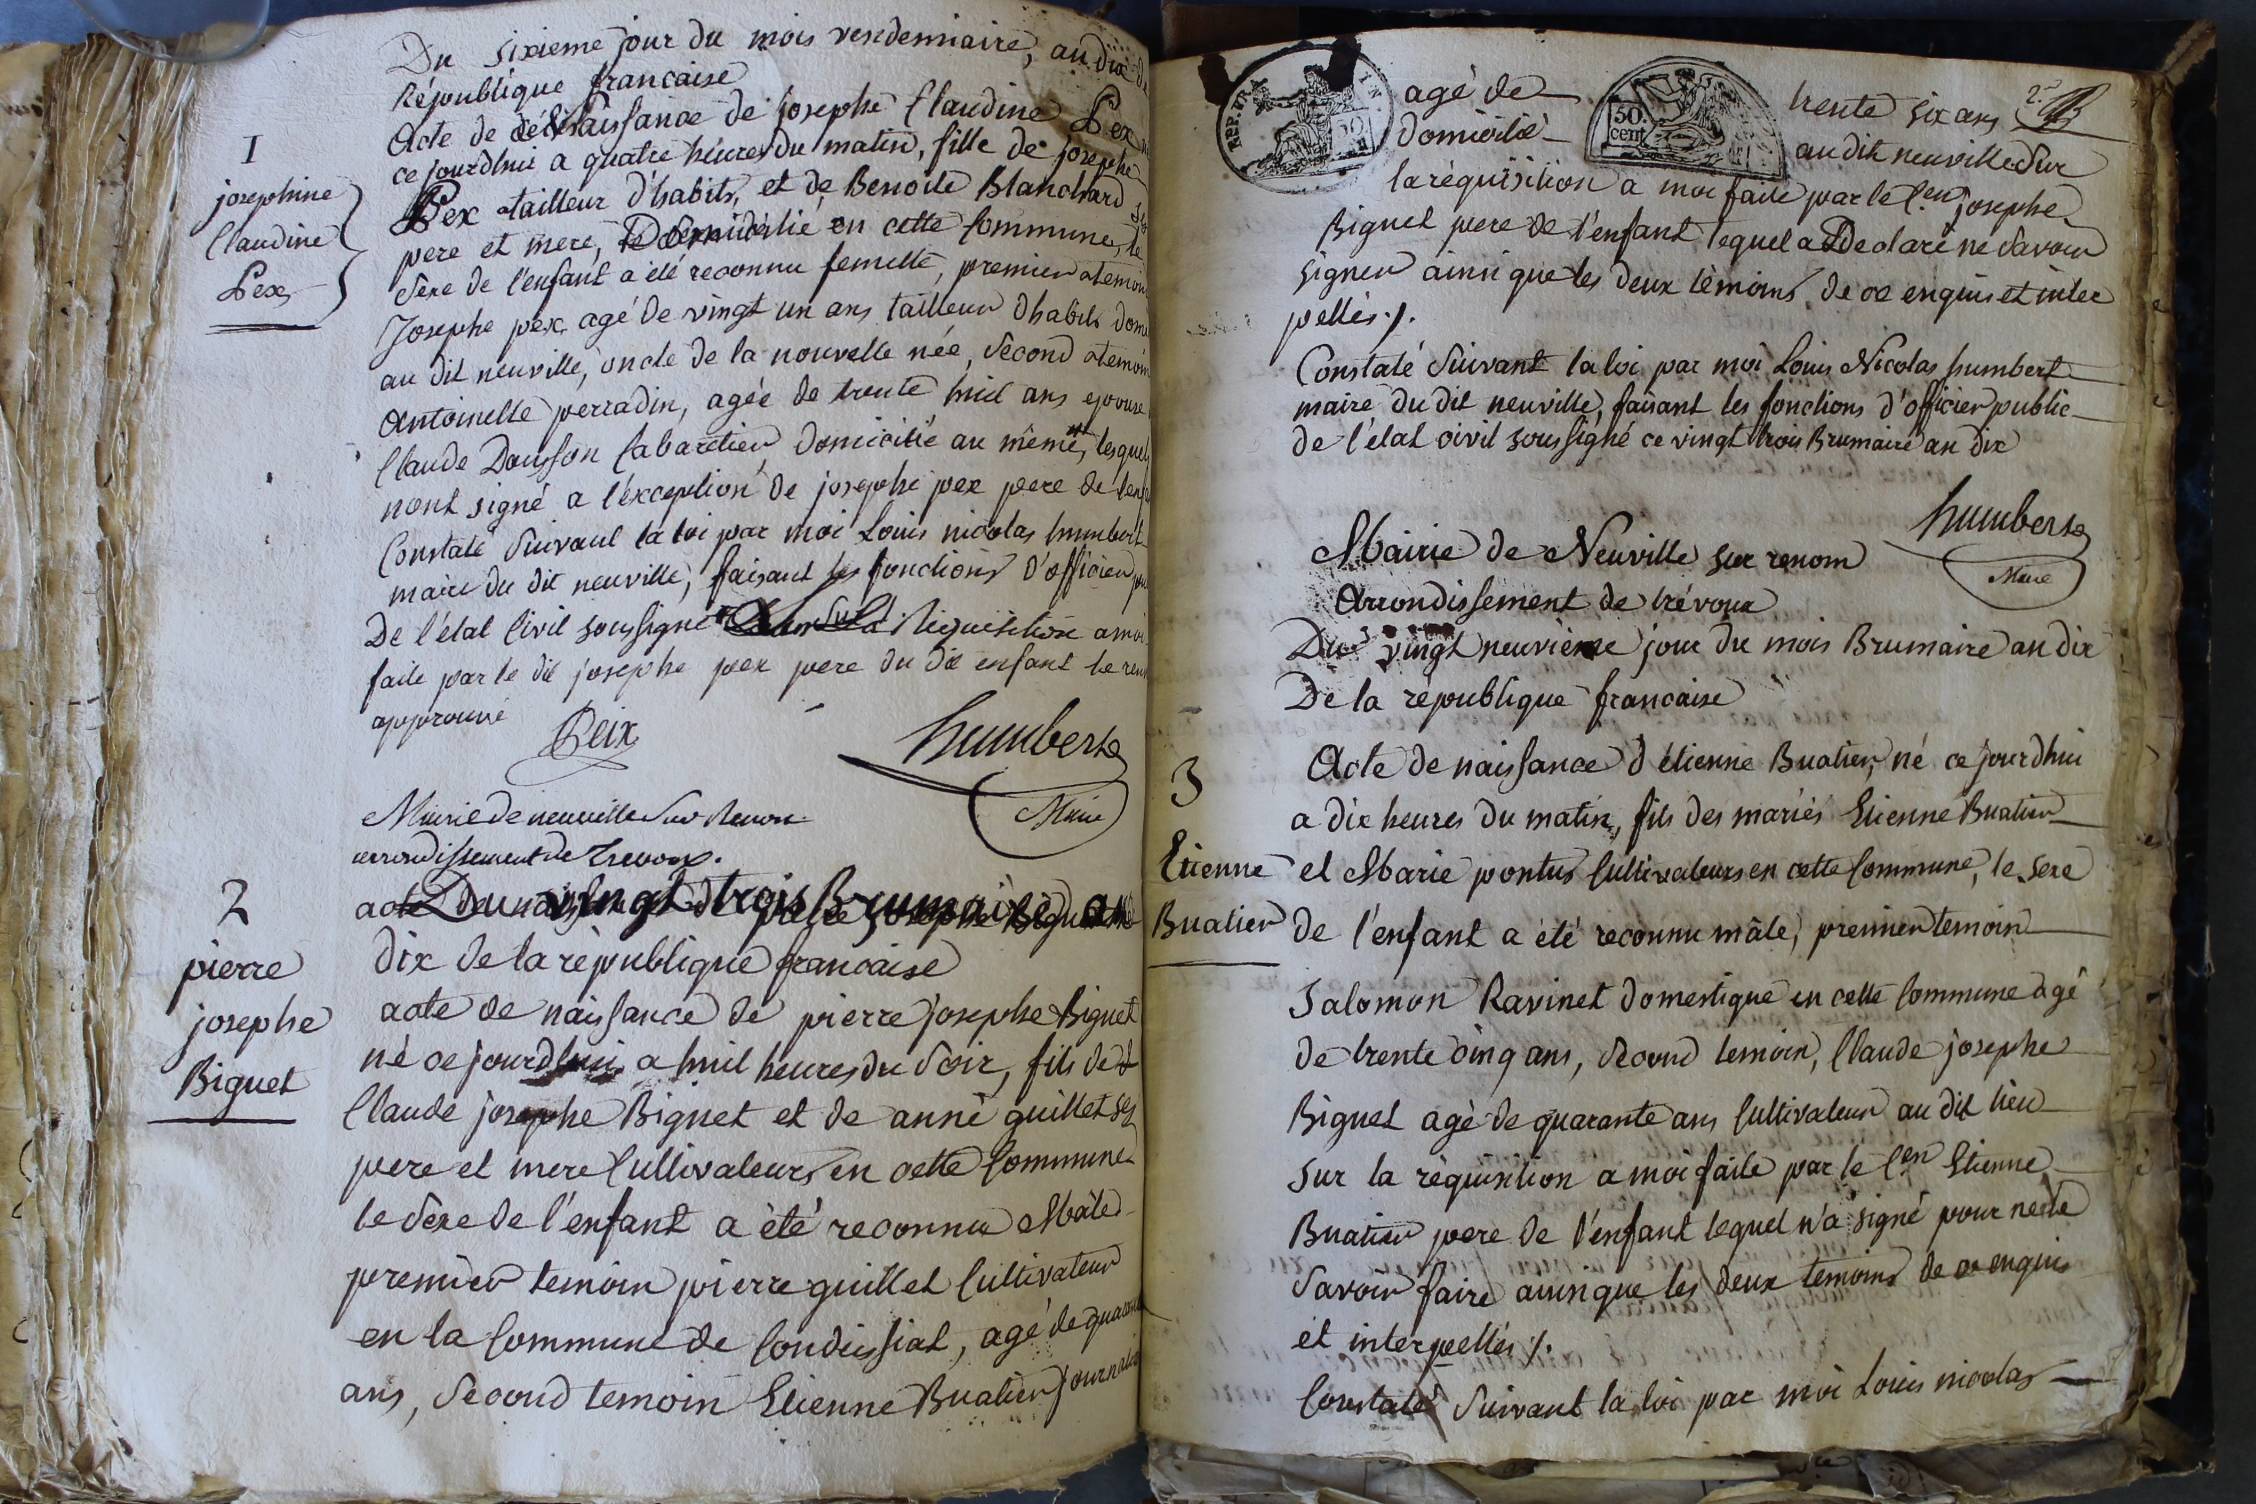 Du sixieme jour du mois vendemiaire, an dix de
République francaise
Acte de naissance de josephe Claudine Pex
ce jourdhui a quatre heures du matin, fille de josephe
Pex tailleur d'habits, et de Benoite Blanchard
pere et mere, domicilié en cette Commune, le
sexe de l'enfant a été reconnu femelle, premier temoin
Josephe pex agé de vingt un ans tailleur dhabits domi
au dit neuville, oncle de la nouvelle née, second temoin
Antoinette perradin, agée de trente huit ans epouse
Claude Dousson Cabaretier domicilié au même, lesquels
nont signé a l'exception de josephe pex pere de lenf
Constaté Suivant la loi par moi Louis nicolas humbert
maire du dit neuville, faisant les fonctions d'officier
De l'état Civil soussigné Sur la Requisition a moi
faite par le dit josephe pex pere du dit enfant le ren
approuvé
Peix
humbert
Maire
1
josephine
Claudine
Pex
Mairie de neuville Sur Renon
arrondissement de Trevoux.
Du vingt trois Brumaire an
dix de la république francaise
acte de naissance de pierre josephe Biguet
né ce jourdhui a huit heures du soir, fils de
Claude josephe Biguet et de anne guillet ses
pere et mere Cultivateurs en cette Commune
le sexe de l'enfant a été reconnu Mâle
premier temoin pierre guillet Cultivateur
en la Commune de Condeissiat, agé de quarante
ans, second temoin Etienne Buatier journalier
2
pierre
josephe
Biguet
REP. FRA
50.
cent
2.
agé de trente six ans
domicilié au dit neuville Sur
la réquisition a moi faite par le Cen josephe
Biguet pere de l'enfant lequel a Declaré ne savoir
signer ainsi que les deux témoins de ce enquis et inter
pellés ./.
Constaté Suivant la loi par moi Louis Nicolas humbert
maire du dit neuville, faisant les fonctions d'officier public
de l'état civil soussigné ce vingt trois Brumaire an dix
humbert
Maire
Mairie de Neuville sur renom
Arrondissement de trévoux
Du vingt neuvieme jour du mois Brumaire an dix
De la république francaise
3
Etienne
Buatier
Acte de naissance d'étienne Buatier, né ce jourdhui
a dix heures du matin, fils des mariés Etienne Buatier
et Marie pontus Cultivateurs en cette Commune, le sexe
de l'enfant a été reconnu mâle, premier temoin
Salomon Ravinet domestique en cette Commune agé
de trente cinq ans, second temoin, Claude josephe
Biguet agé de quarante ans Cultivateur au dit lieu
sur la réquisition a moi faite par le Cen Etienne
Buatier pere de l'enfant lequel n'a signé pour ne le
Savoir faire ainsi que les deux temoins de ce enquis
et interpellés ./.
Constaté Suivant la loi par moi Louis nicolas